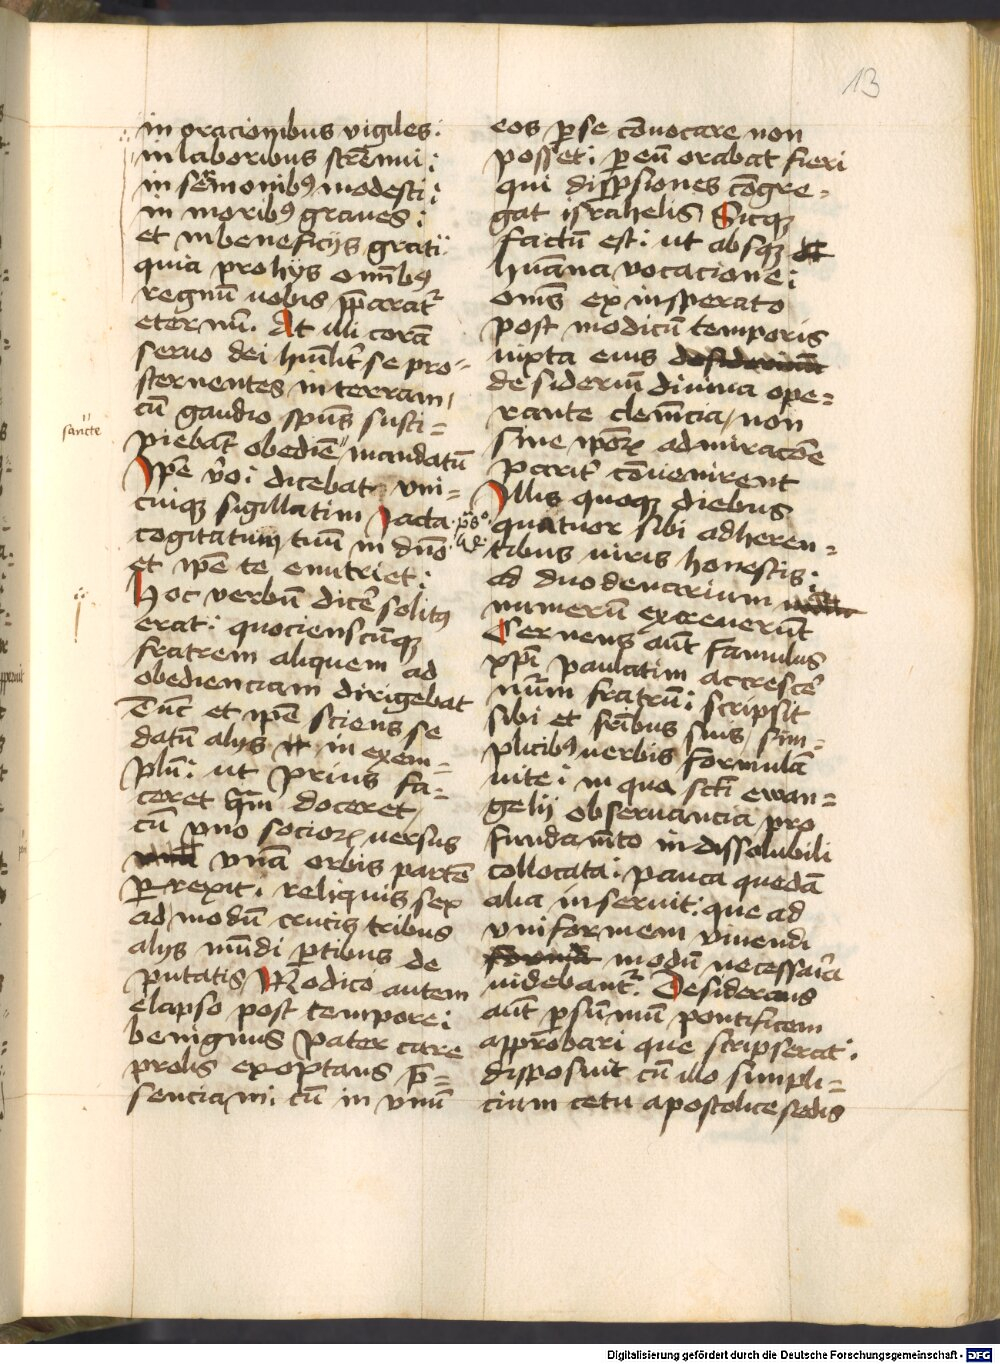 13
in oracionibus vigiles:
in laboribus stre̅nui:
in s̅monib9 modesti:
in morib9 graues:
et in beneficijs grati:
quia pro hijs om̅ib9
regnu̅ uobis p̅parat̉
eternu̅. At illi cora̅
seruo dei hu̅ilit̉ se pro=
sternentes in terram,
cu̅ gaudio sp̅us susci=
sancte
piebant obedie̅ mandatu̅
Ip̅e v̉o: dicebat vni=
cuiqꝫ sigillatim Iacta ps̅o
cogitatum tuu̅ in d̅no
et ip̅e te enutriet:
Hoc verbu̅ dicẻ solit9
erat: quocienscu̅qꝫ
fratrem aliquem ad
obedienciam dirigebat
Tu̅c et ip̅e sciens se
datu̅ alijs in exem=
plu̅: ut prius fa=
ceret q̅m doceret,
cu̅ vno socioꝝ versus
vna̅ orbis parte̅
ꝑrexit. reliquis sex
ad modu̅ crucis tribus
alijs mu̅di ꝑtibus de
putatis Modico autem
elapso post tempore:
benignus pater care
prolis exoptans p̅=
senciam: cu̅ in vnu̅
eos ꝑ se co̅uocare non
posset: ꝑ eu̅ orabat fieri
qui disꝑsiones co̅gre=
gat israhelis Sicqꝫ
factu̅ est: ut absqꝫ
hu̅ana vocacione:
om̅s ex insperato
post modicu̅ temporis
iuxta eius
desideriu̅ diuina ope=
rante cleme̅cia, non
sine ip̅oꝝ admiracõe
parit̉ co̅uenirent
Illis quoqꝫ diebus
quatuor sibi adheren=
tibus uiris honestis:
ad duodenarium
numeru̅ excreueru̅t
Cernens au̅t famulus
xp̅i paulatim accrescẻ
nu̅m fratru̅: scripsit
sibi et fr̅ibus suis sim=
plicib9 uerbis formula̅
uite: in qua sc̅i ewan=
gelij obseruancia pro
fundame̅to indissolubili
collocata: pauca queda̅
alia inseruit: que ad
vniformem viuendi
modu̅ necessaria
uidebant̉. Desiderans
au̅t ꝑ su̅mu̅ pontificem
approbari que scripserat:
disposuit cu̅ illo simpli=
cium cetu apostolice sedis
Digitalisierung gefördert durch die Deutsche Forschungsgemeinschaft - DFG